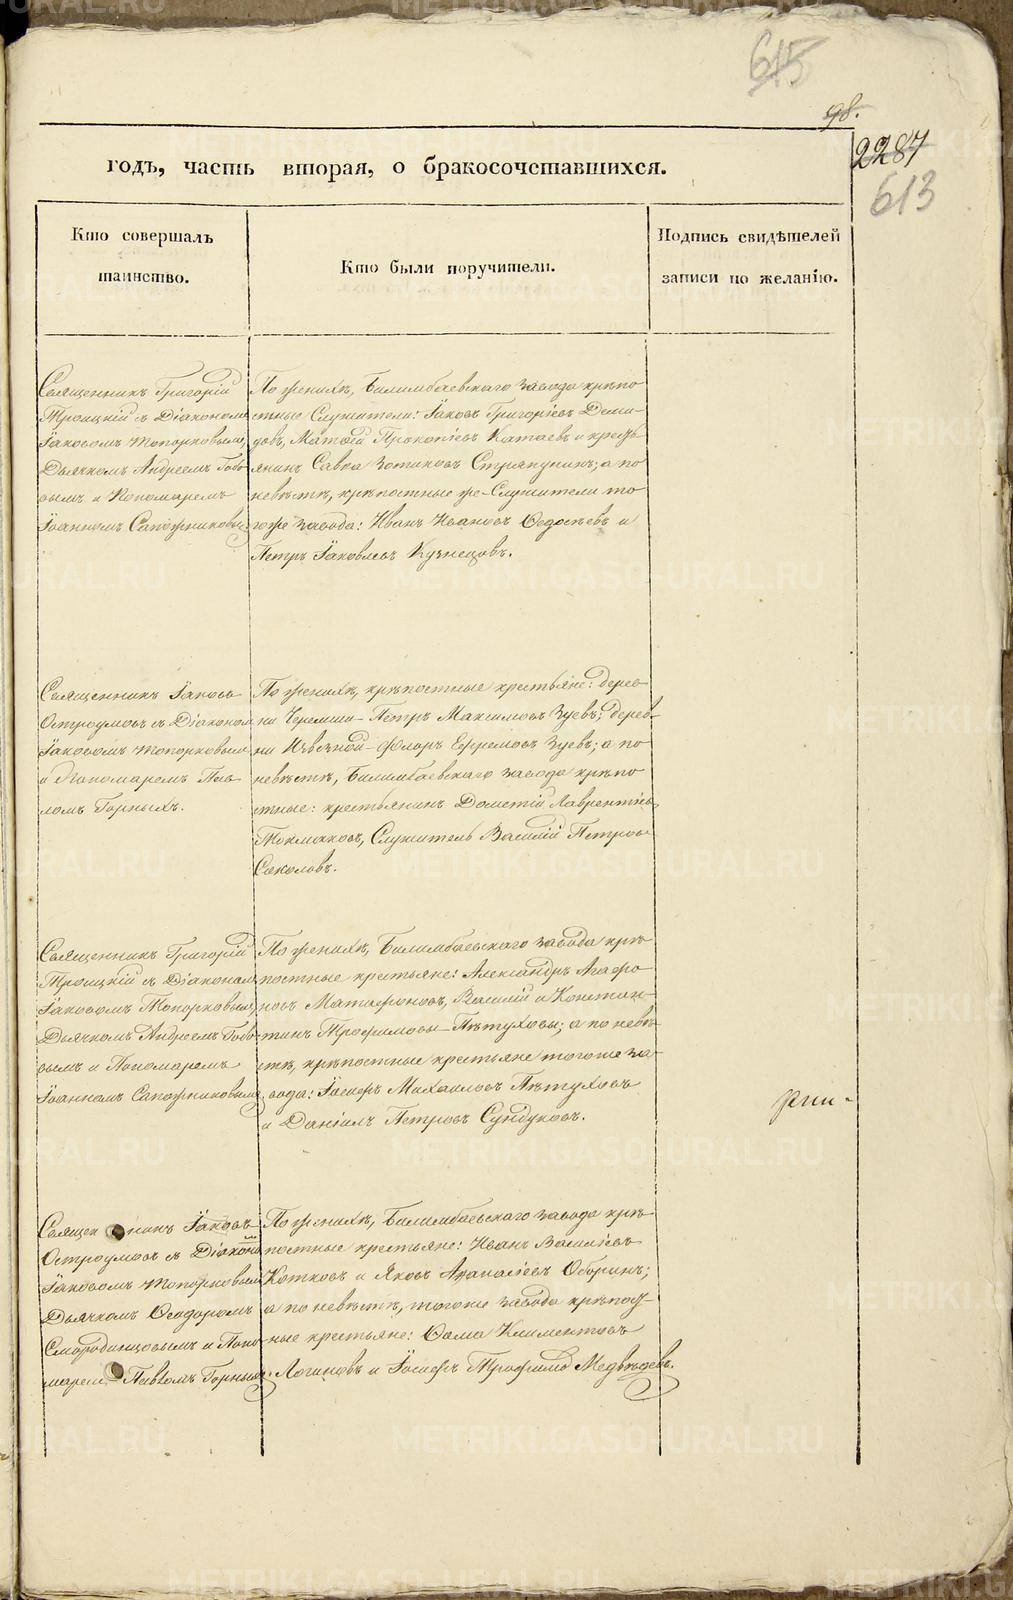 615
98.
2287
613
годъ, часть вторая, о бракосочетавшихся.
Кто совершалъ
таинство.
Кто были поручители.
Подпись свидѣтелей
записи по желанію.
Священникъ Григорій
Троицкій съ Діакономъ
Іаковомъ Топорковымъ,
Дьячкомъ Андреемъ Гово
вымъ и Пономаремъ
Іоанномъ Сапожниковы
По женихѣ, Билимбаевскаго завода крѣпо
стные Служители: Іаковъ Григоріевъ Деми-
довъ, Матѳей Прокопіевъ Катаевъ и кресть
янинъ Савва Зотиковъ Стряпунинъ; а по
невѣстѣ, крѣпостные же Служители то
гоже завода: Иванъ Ивановъ Ѳедосѣевъ и
Петръ Іаковлевъ Кузнецовъ.
Священникъ Іаковъ
Остроумовъ съ Діакономъ
Іаковомъ Топорковымъ
и Пономаремъ Пав
ломъ Горныхъ.
По женихѣ, крѣпостные крестьяне: дерев
ни Черемши - Петръ Максимовъ Зуевъ; дерев-
ни Извезной - Флоръ Ефремовъ Зуевъ; а по
невѣстѣ, Билимбаевскаго завода крѣпо
стные: крестьянинъ Дометій Лаврентіевъ
Токмаковъ, Служитель Василій Петровъ
Соколовъ.
Священникъ Григорій
Троицкій съ Діаконом
Іаковомъ Топорковым,
Дьячкомъ Андреемъ Гово
вымъ и Пономаремъ
Іоанномъ Сапожниковымъ
По женихѣ, Билимбаевскаго завода крѣ
постные крестьяне: Александръ Агафо
новъ Матафоновъ, Василій и Констан-
тинъ Трофимовы - Пѣтуховы; а по невѣ
стѣ, крѣпостные крестьяне тогоже за-
вода: Іосифъ Михаиловъ Пѣтуховъ
и Даніилъ Петровъ Сундуковъ.
Священникъ Іаковъ
Остроумовъ съ Діакономъ
Іаковомъ Топорковым
Дьячкомъ Ѳеодоромъ
Смородинцовымъ и Поно
маремъ Павломъ Горных.
По женихѣ, Билимбаевскаго завода крѣ-
постные крестьяне: Иванъ Василіевъ
Котковъ и Яковъ Аѳанасіевъ Оборинъ;
а по невѣстѣ, тогоже завода крѣпост-
ные крестьяне: Ѳома Климентовъ
Логиновъ и Іосифъ Трофимовъ Медвѣдевъ.